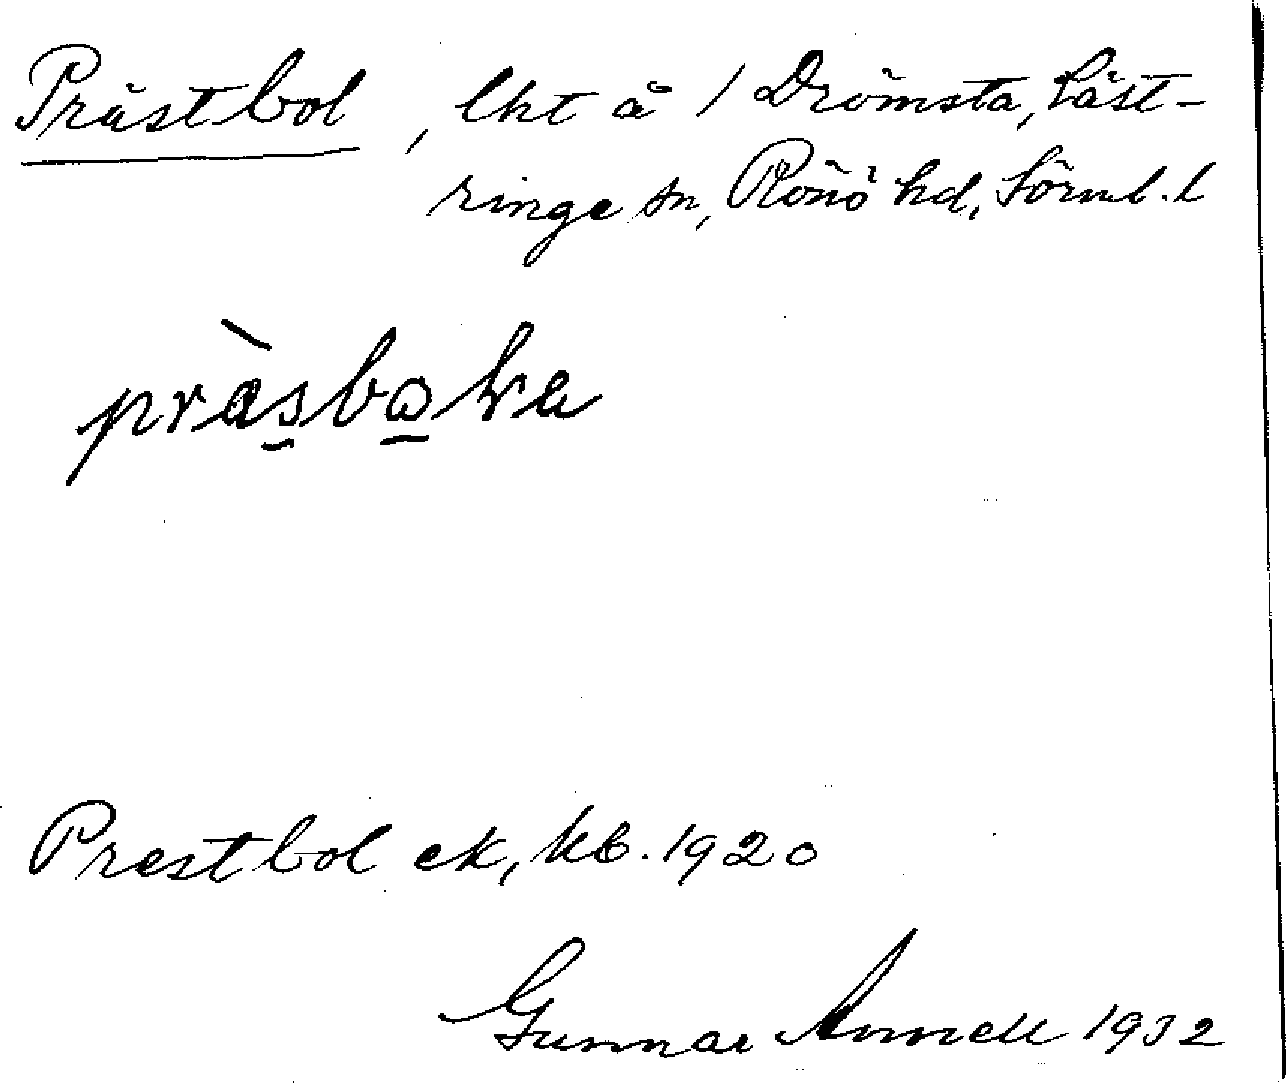 Prästbol, lht å 1 Drömsta, Läst-
ringe sn, Rönö hd, Sörml. l
Prestbol ek, kb. 1920
Gunnar Annell 1932